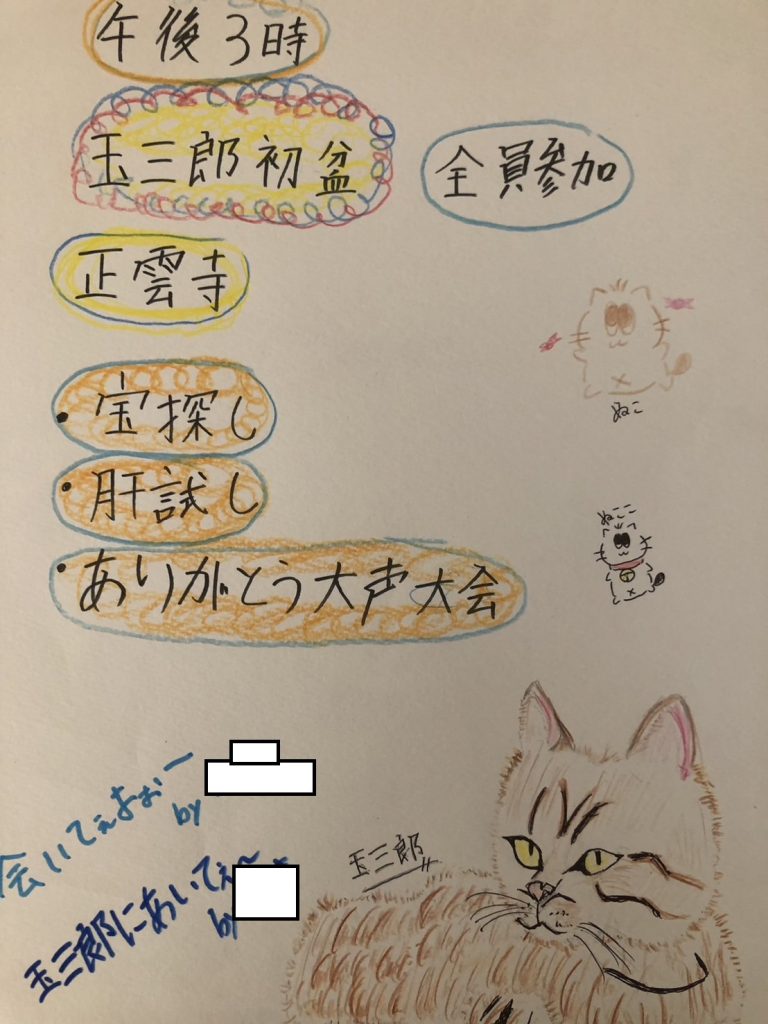 午後3時
玉三郎初盆
全員参加
正雲寺
・宝探し
・肝試し
・ありがとう大声大会
ぬこ
ぬここ
玉三郎
会いてぇよぉー
by
玉三郎にあいてぇ〜
by